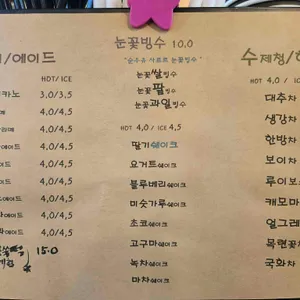 눈꽃빙수 10.0
"순우유 사르르 눈꽃빙수"
눈꽃쌀빙수
눈꽃팥빙수
눈꽃과일빙수
HOT 4,0 / ICE 4,5
딸기쉐이크
요거트쉐이크
블루베리쉐이크
미숫가루쉐이크
초코쉐이크
고구마쉐이크
녹차쉐이크
마차쉐이크
/에이드
HOT / ICE
카노 3,0/3,5
4,0/4,5
4,0/4,5
에이드 4,0/4,5
4,0/4,5
4,0/4,5
에이드 4,0/4,5
에이드 4,0/4,5
15.0
수제청/
대추차
생강차
한방차
보이차
루이보
캐모마
얼그레
목련꽃차
국화차